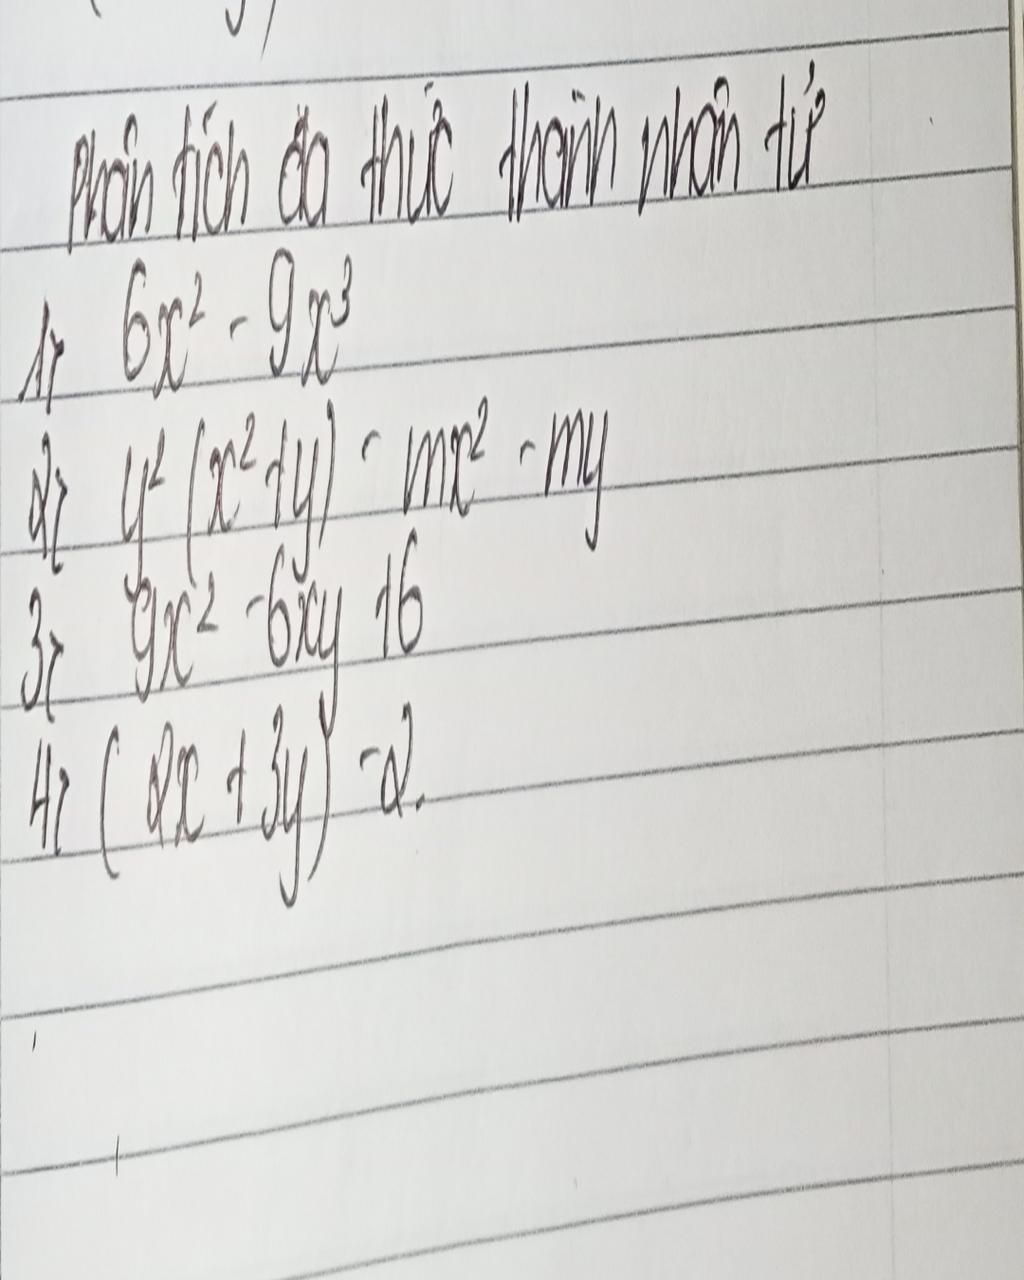 Phân tích đa thức thành nhân tử
1, 6x² - 9x³
2, y² (x² + y) - mx² - my
3, 9x² - 6xy + 6
4, (2x + 3y) - 2.